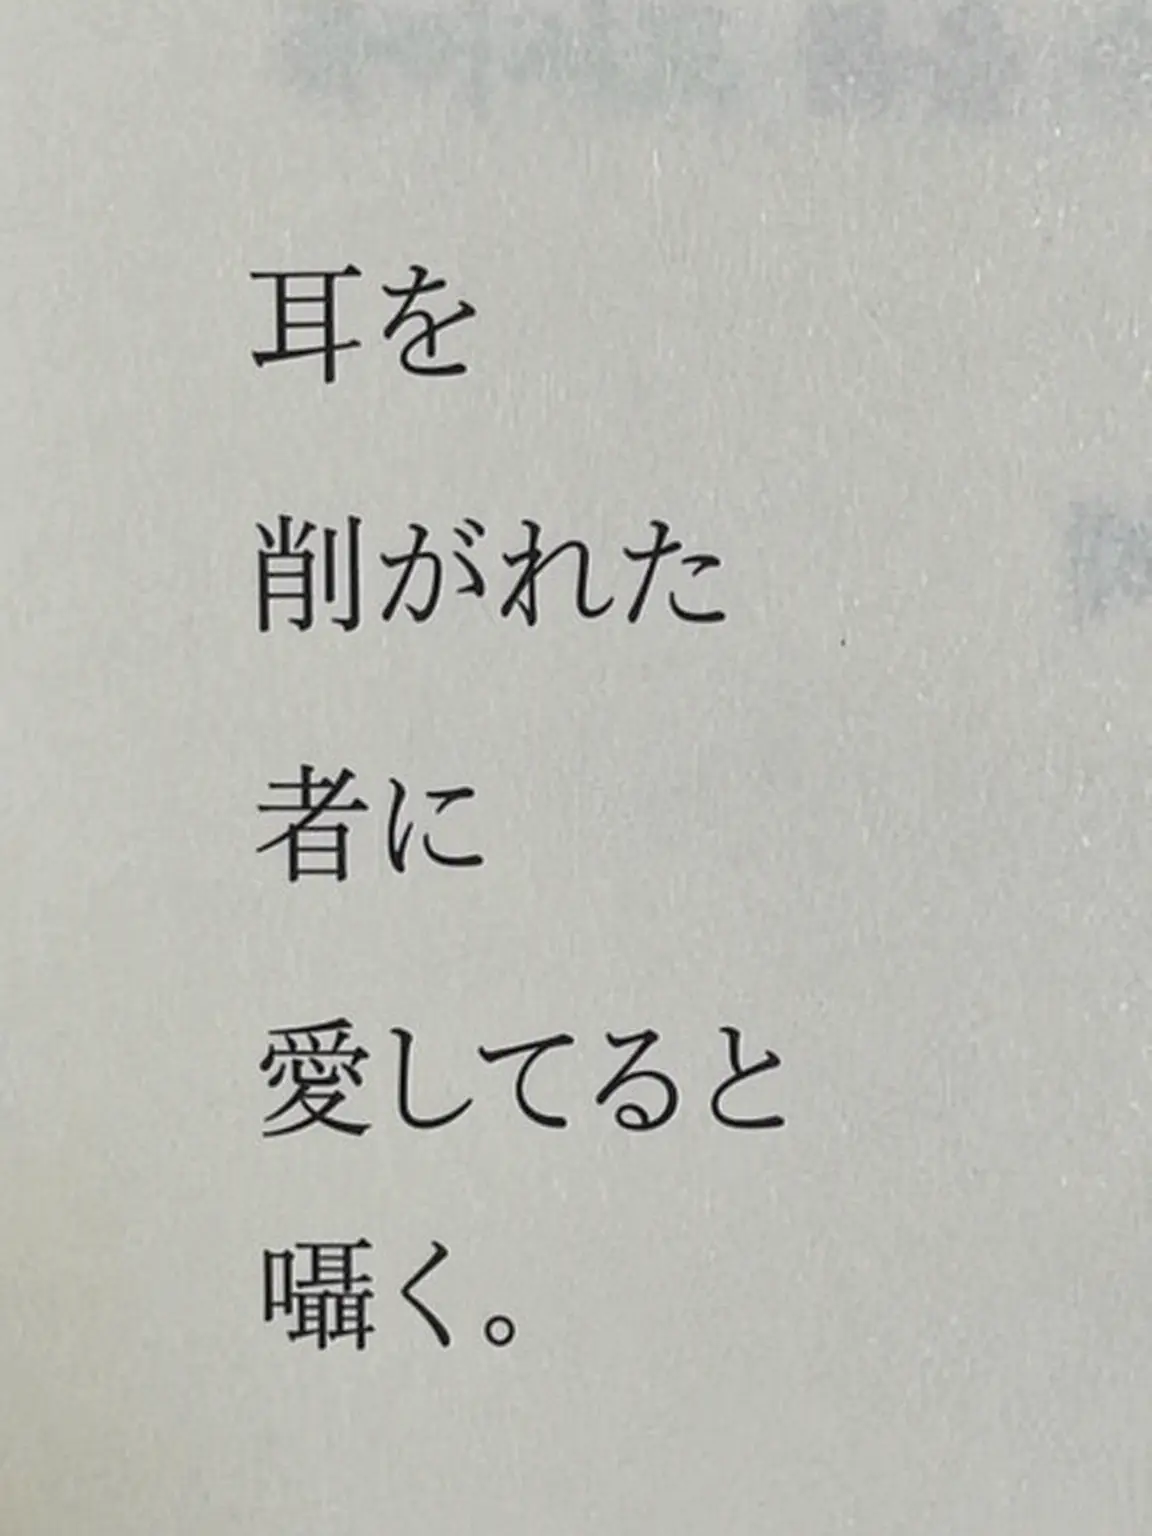 耳を
削がれた
者に
愛してると
囁く。